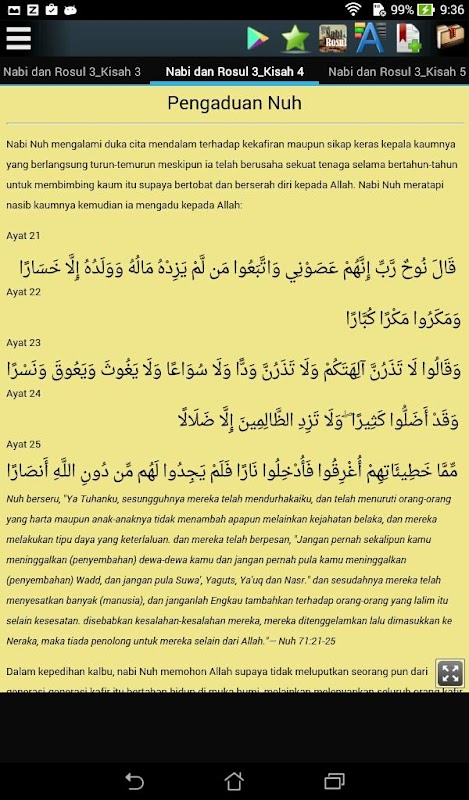 99% 9:36
Nabi Rosul
Nabi dan Rosul 3_Kisah 3 Nabi dan Rosul 3_Kisah 4 Nabi dan Rosul 3_Kisah 5
Pengaduan Nuh
Nabi Nuh mengalami duka cita mendalam terhadap kekafiran maupun sikap keras kepala kaumnya
yang berlangsung turun-temurun meskipun ia telah berusaha sekuat tenaga selama bertahun-tahun
untuk membimbing kaum itu supaya bertobat dan berserah diri kepada Allah. Nabi Nuh meratapi
nasib kaumnya kemudian ia mengadu kepada Allah:
Ayat 21
قَالَ نُوحٌ رَّبِّ إِنَّهُمْ عَصَوْنِي وَاتَّبَعُوا مَن لَّمْ يَزِدْهُ مَالُهُ وَوَلَدُهُ إِلَّا خَسَارًا
Ayat 22
وَمَكَرُوا مَكْرًا كُبَّارًا
Ayat 23
وَقَالُوا لَا تَذَرُنَّ آلِهَتَكُمْ وَلَا تَذَرُنَّ وَدًّا وَلَا سُوَاعًا وَلَا يَغُوثَ وَيَعُوقَ وَنَسْرًا
Ayat 24
وَقَدْ أَضَلُّوا كَثِيرًا ۖ وَلَا تَزِدِ الظَّالِمِينَ إِلَّا ضَلَالًا
Ayat 25
مِّمَّا خَطِيئَاتِهِمْ أُغْرِقُوا فَأُدْخِلُوا نَارًا فَلَمْ يَجِدُوا لَهُم مِّن دُونِ اللَّهِ أَنصَارًا
Nuh berseru, "Ya Tuhanku, sesungguhnya mereka telah mendurhakaiku, dan telah menuruti orang-orang
yang harta maupun anak-anaknya tidak menambah apapun melainkan kejahatan belaka, dan mereka
melakukan tipu daya yang keterlaluan. dan mereka telah berpesan, "Jangan pernah sekalipun kamu
meninggalkan (penyembahan) dewa-dewa kamu dan jangan pernah pula kamu meninggalkan
(penyembahan) Wadd, dan jangan pula Suwa', Yaguts, Ya'uq dan Nasr." dan sesudahnya mereka telah
menyesatkan banyak (manusia), dan janganlah Engkau tambahkan terhadap orang-orang yang lalim itu
selain kesesatan. disebabkan kesalahan-kesalahan mereka, mereka ditenggelamkan lalu dimasukkan ke
Neraka, maka tiada penolong untuk mereka selain dari Allah."— Nuh 71:21-25
Dalam kepedihan kalbu, nabi Nuh memohon Allah supaya tidak meluputkan seorang pun dari
generasi generasi kafir itu bertahan hidup di muka bumi, melainkan melenyapkan seluruh orang kafir